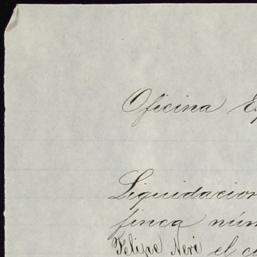 Oficina
Liquidacion
finca
Felipe Neri el